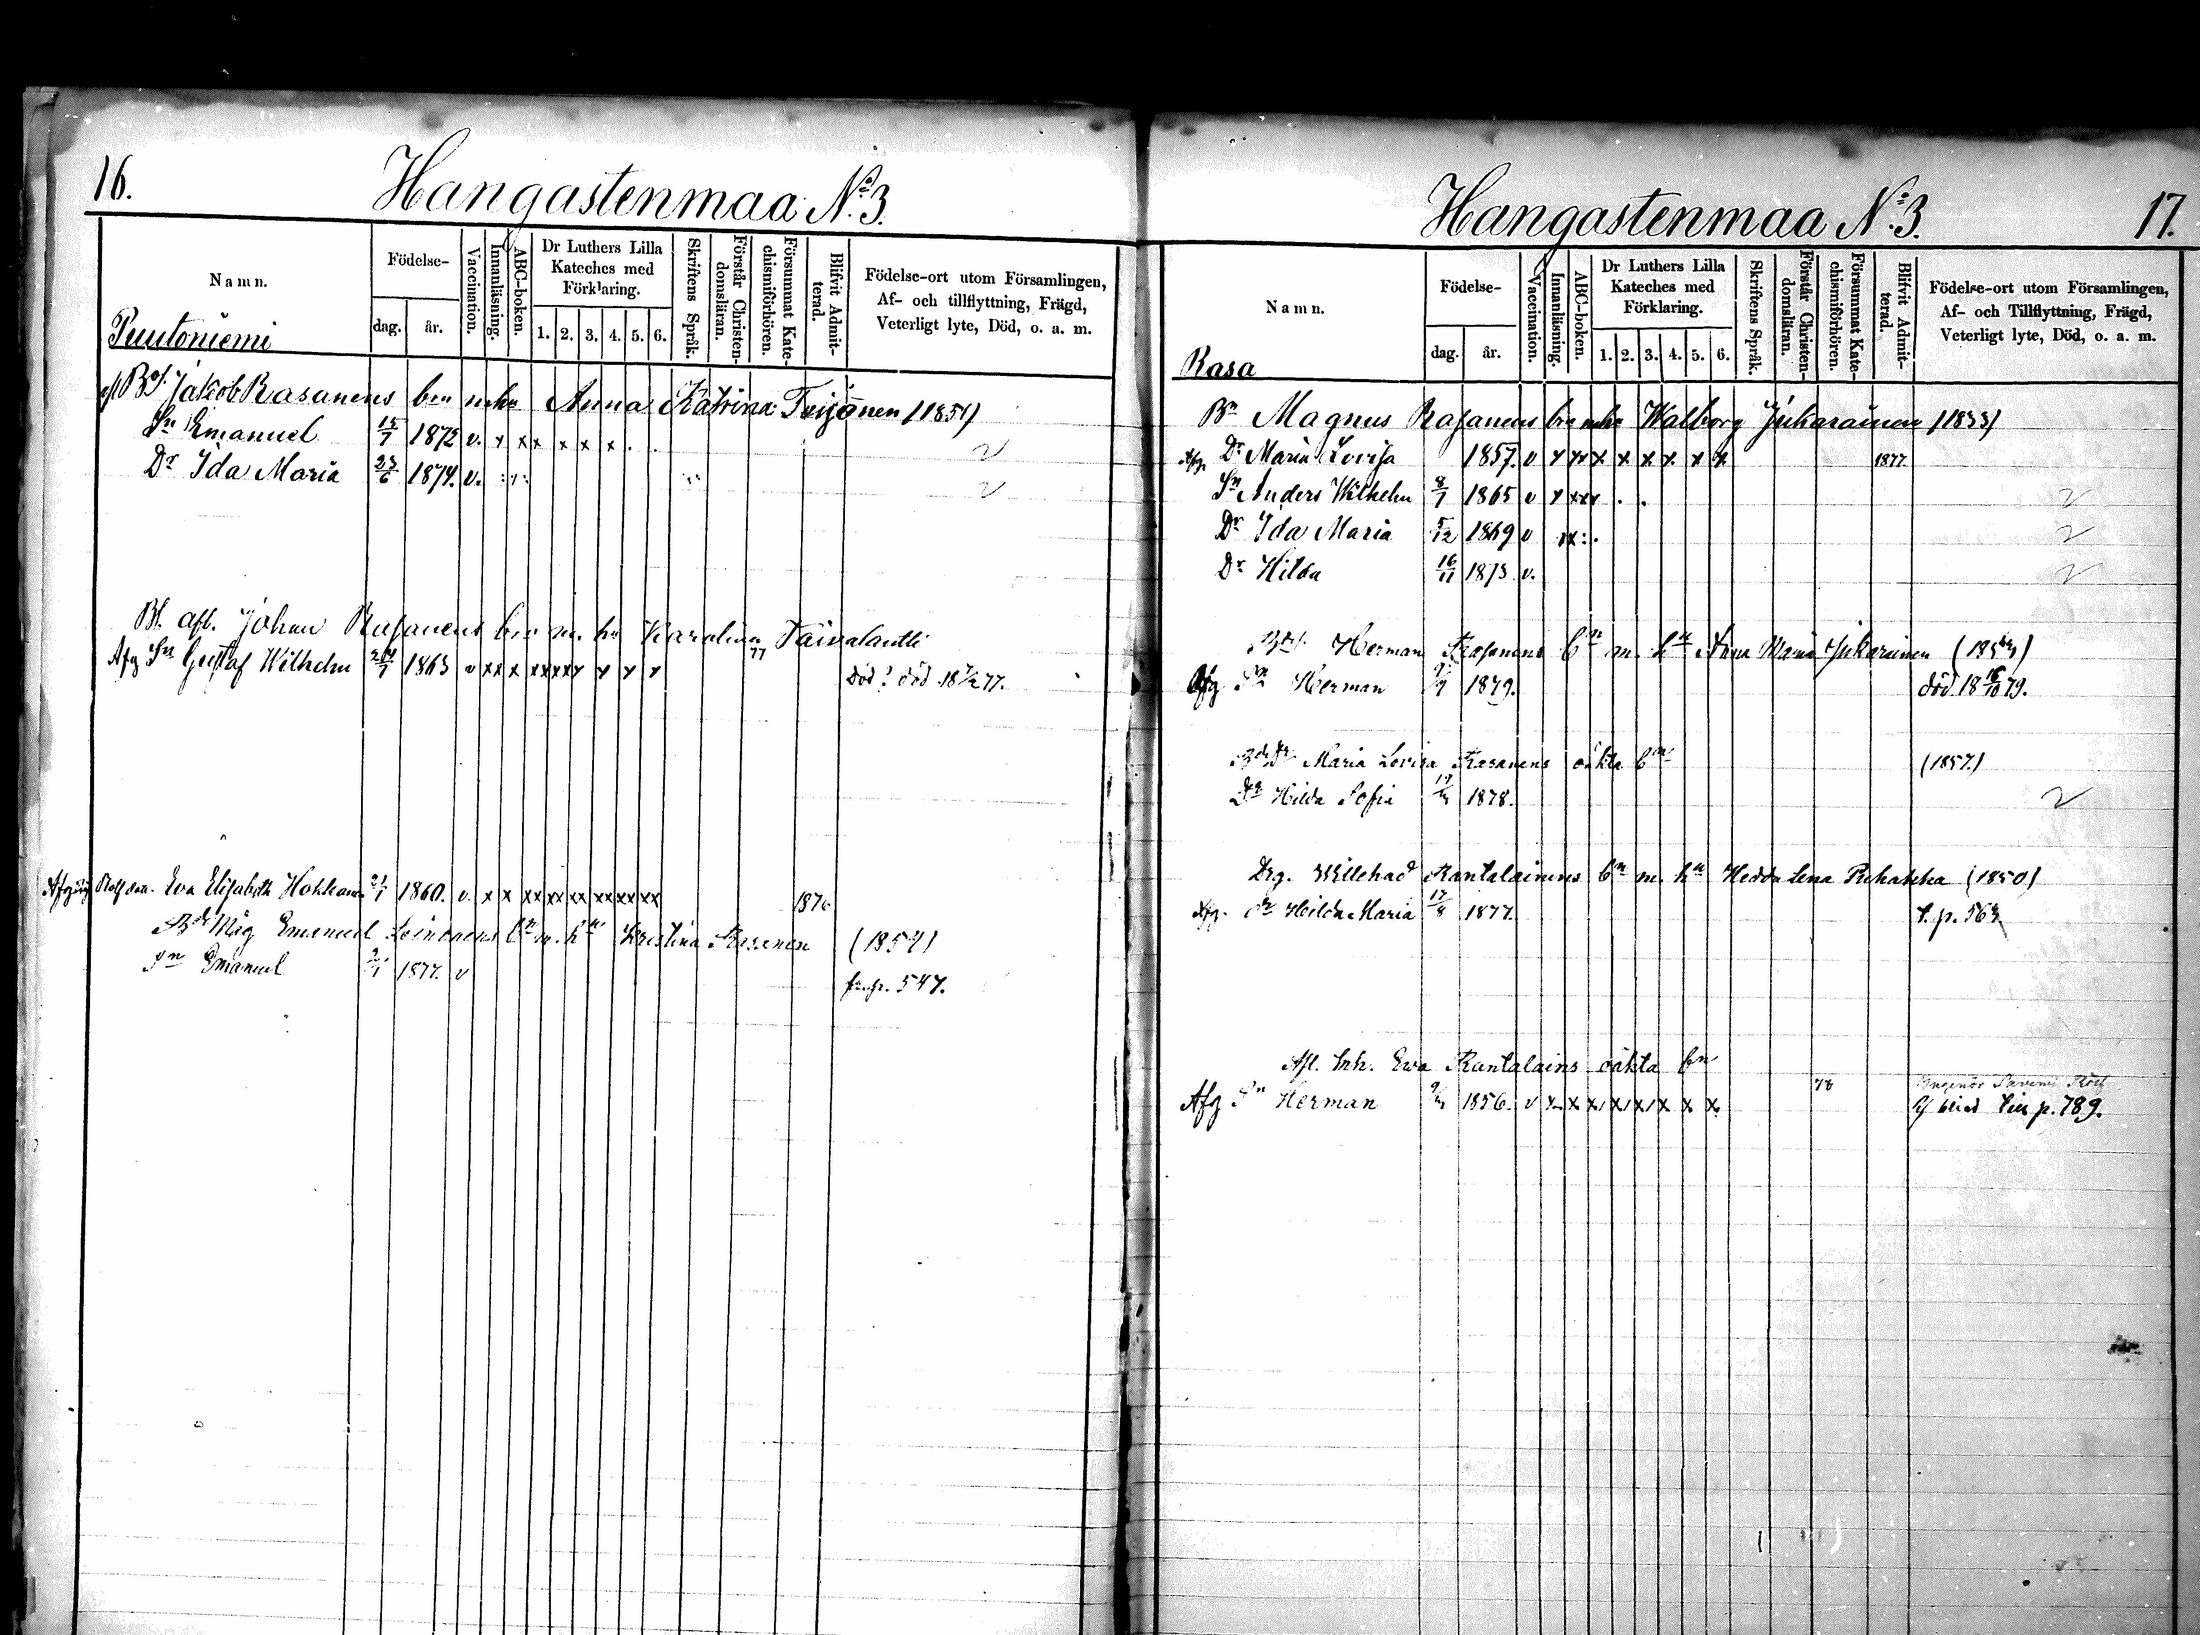 16.
Hangastenmaa No. 3.
Namn.
Födelse-
dag.
år.
Vaccination.
Innanläsning.
ABC-boken.
Dr Luthers Lilla Kateches med Förklaring.
1. 2. 3. 4. 5. 6.
Skriftens Språk.
Förstår Christendomsläran.
Försummat Katechismiförhören.
Blifvit Admitterad.
Födelse-ort utom Församlingen, Af- och tillflyttning, Frägd, Veterligt lyte, Död, o. a. m.
Puutoniemi
Jakob Rasanens Anna Katrina Teijonen (1851)
Sn Emanuel 15/7 1872 v. x x x x x x x . .
Dr Ida Maria 23/6 1874. v.
Bf. afl. Johan Rasanens bn m. hu Karolina Taivalantti
Afg Sn Gustaf Wilhelm 24/7 1863 v 77 Död? död 18 77.
Afg Eva Elisabeth 1860. v. x x xx xx xx xx xx xx 1876
Måg Emanuel Loinonens bn m. hu Kristina Rasanen (1857)
Sn Emanuel 1877. v fr. p. 547.
Hangastenmaa No. 3.
17.
Namn.
Födelse-
dag.
år.
Vaccination.
Innanläsning.
ABC-boken.
Dr Luthers Lilla Kateches med Förklaring.
1. 2. 3. 4. 5. 6.
Skriftens Språk.
Förstår Christendomsläran.
Försummat Katechismiförhören.
Blifvit Admitterad.
Födelse-ort utom Församlingen, Af- och Tillflyttning, Frägd, Veterligt lyte, Död, o. a. m.
Rasa
Bn Magnus Rasanens Walborg Jukarainen (1833)
Afg. Dr Maria Lovisa 1857. v x xx x x x x x x 1877.
Sn Anders Wilhelm 8/7 1865 v x xxx . .
Dr Ida Maria 5/12 1869 v xx : .
Dr Hilda 16/11 1873 v.
Herman Rasanens bn m. hu Anna Maria Jukarainen
Afg Sn Herman 1879. död 18 16/10 79.
Maria Lovisa Rasanens oäkta bn (1857.)
Dr Hilda Sofia 1878.
Drg. Willehad Rantalainens bn m. hu Hedda Lena Pihakka (1850)
Afg. Dr Hilda Maria 17/8 1877. t. p. 563
Afl. Inh. Ewa Rantalains oäkta bn
Afg Sn Herman 1856. v x x x x x x x x 78 p. 789.